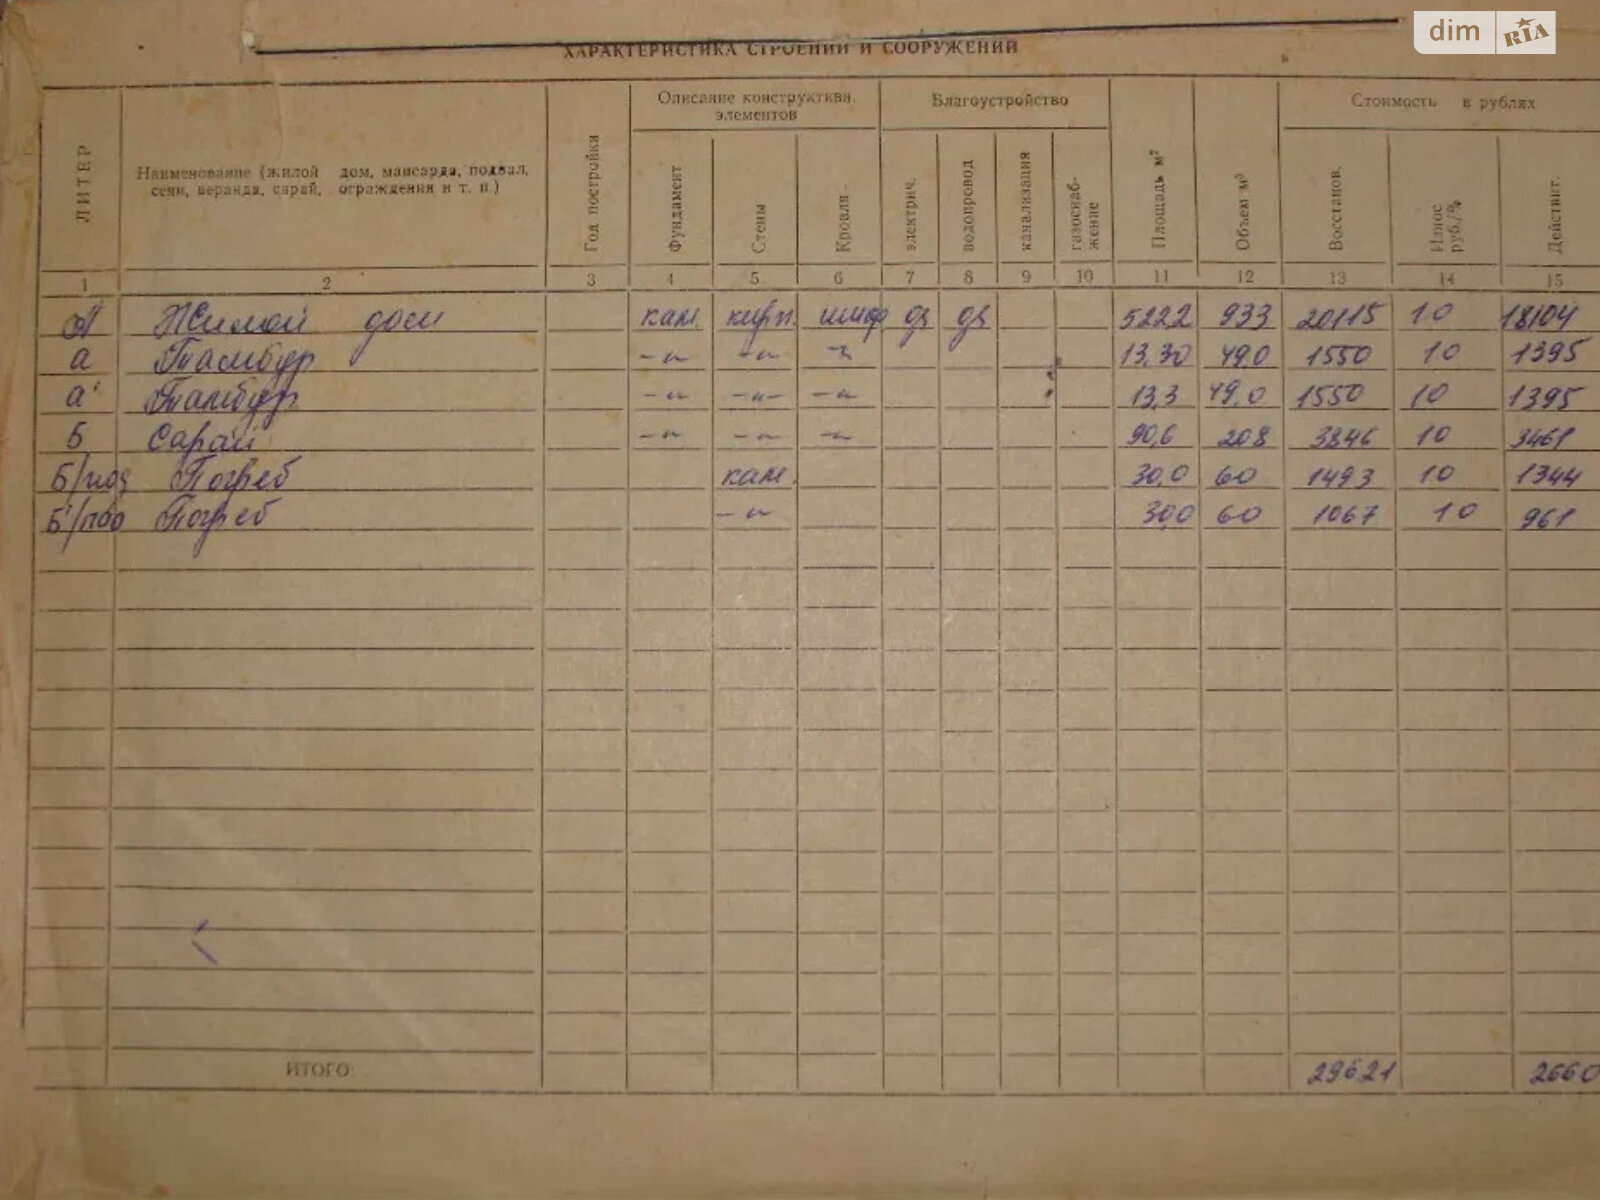 dim RIA
ХАРАКТЕРИСТИКА СТРОЕНИЙ И СООРУЖЕНИЙ
ЛИТЕР
Наименование (жилой дом, мансарда, подвал,
сени, веранда, сарай, ограждения и т. п.)
Год постройки
Описание конструктивн.
элементов
Фундамент
Стены
Кровля
Благоустройство
электрич.
водопровод
канализация
газоснаб-
жение
Площадь м²
Объем м³
Стоимость в рублях
Восстанов.
Износ
руб./%
Действит.
1 2 3 4 5 6 7 8 9 10 11 12 13 14 15
А Жилой дом кам. кирп. шиф да да 522,2 933 20115 10 18104
а Тамбур -"- -"- -"- 13,30 49,0 1550 10 1395
а' Тамбур -"- -"- -"- 13,3 49,0 1550 10 1395
Б Сарай -"- -"- -"- 90,6 208 3846 10 3461
Б/под Погреб кам. 30,0 60 1493 10 1344
Б'/под Погреб -"- 30,0 60 1067 10 961
ИТОГО: 29621 2660